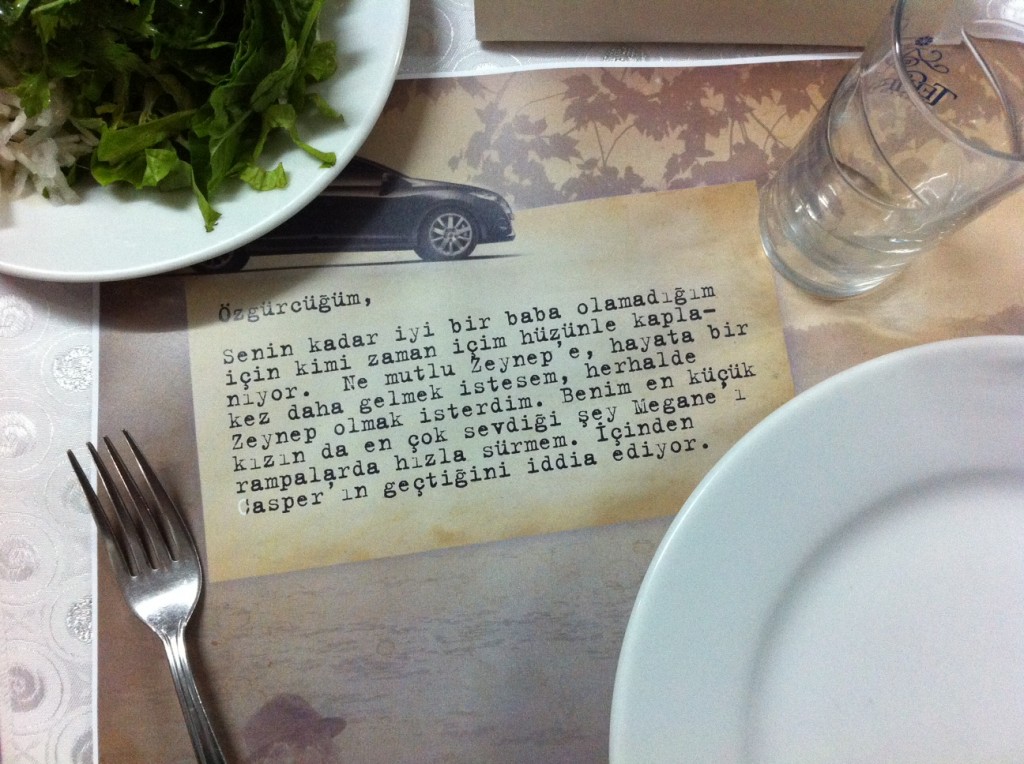 Özgürcüğüm,
Senin kadar iyi bir baba olamadığım
için kimi zaman içim hüzünle kapla-
nıyor. Ne mutlu Zeynep'e, hayata bir
kez daha gelmek istesem, herhalde
Zeynep olmak isterdim. Benim en küçük
kızın da en çok sevdiği şey Megane'ı
rampalarda hızla sürmem. İçinden
Casper'ın geçtiğini iddia ediyor.